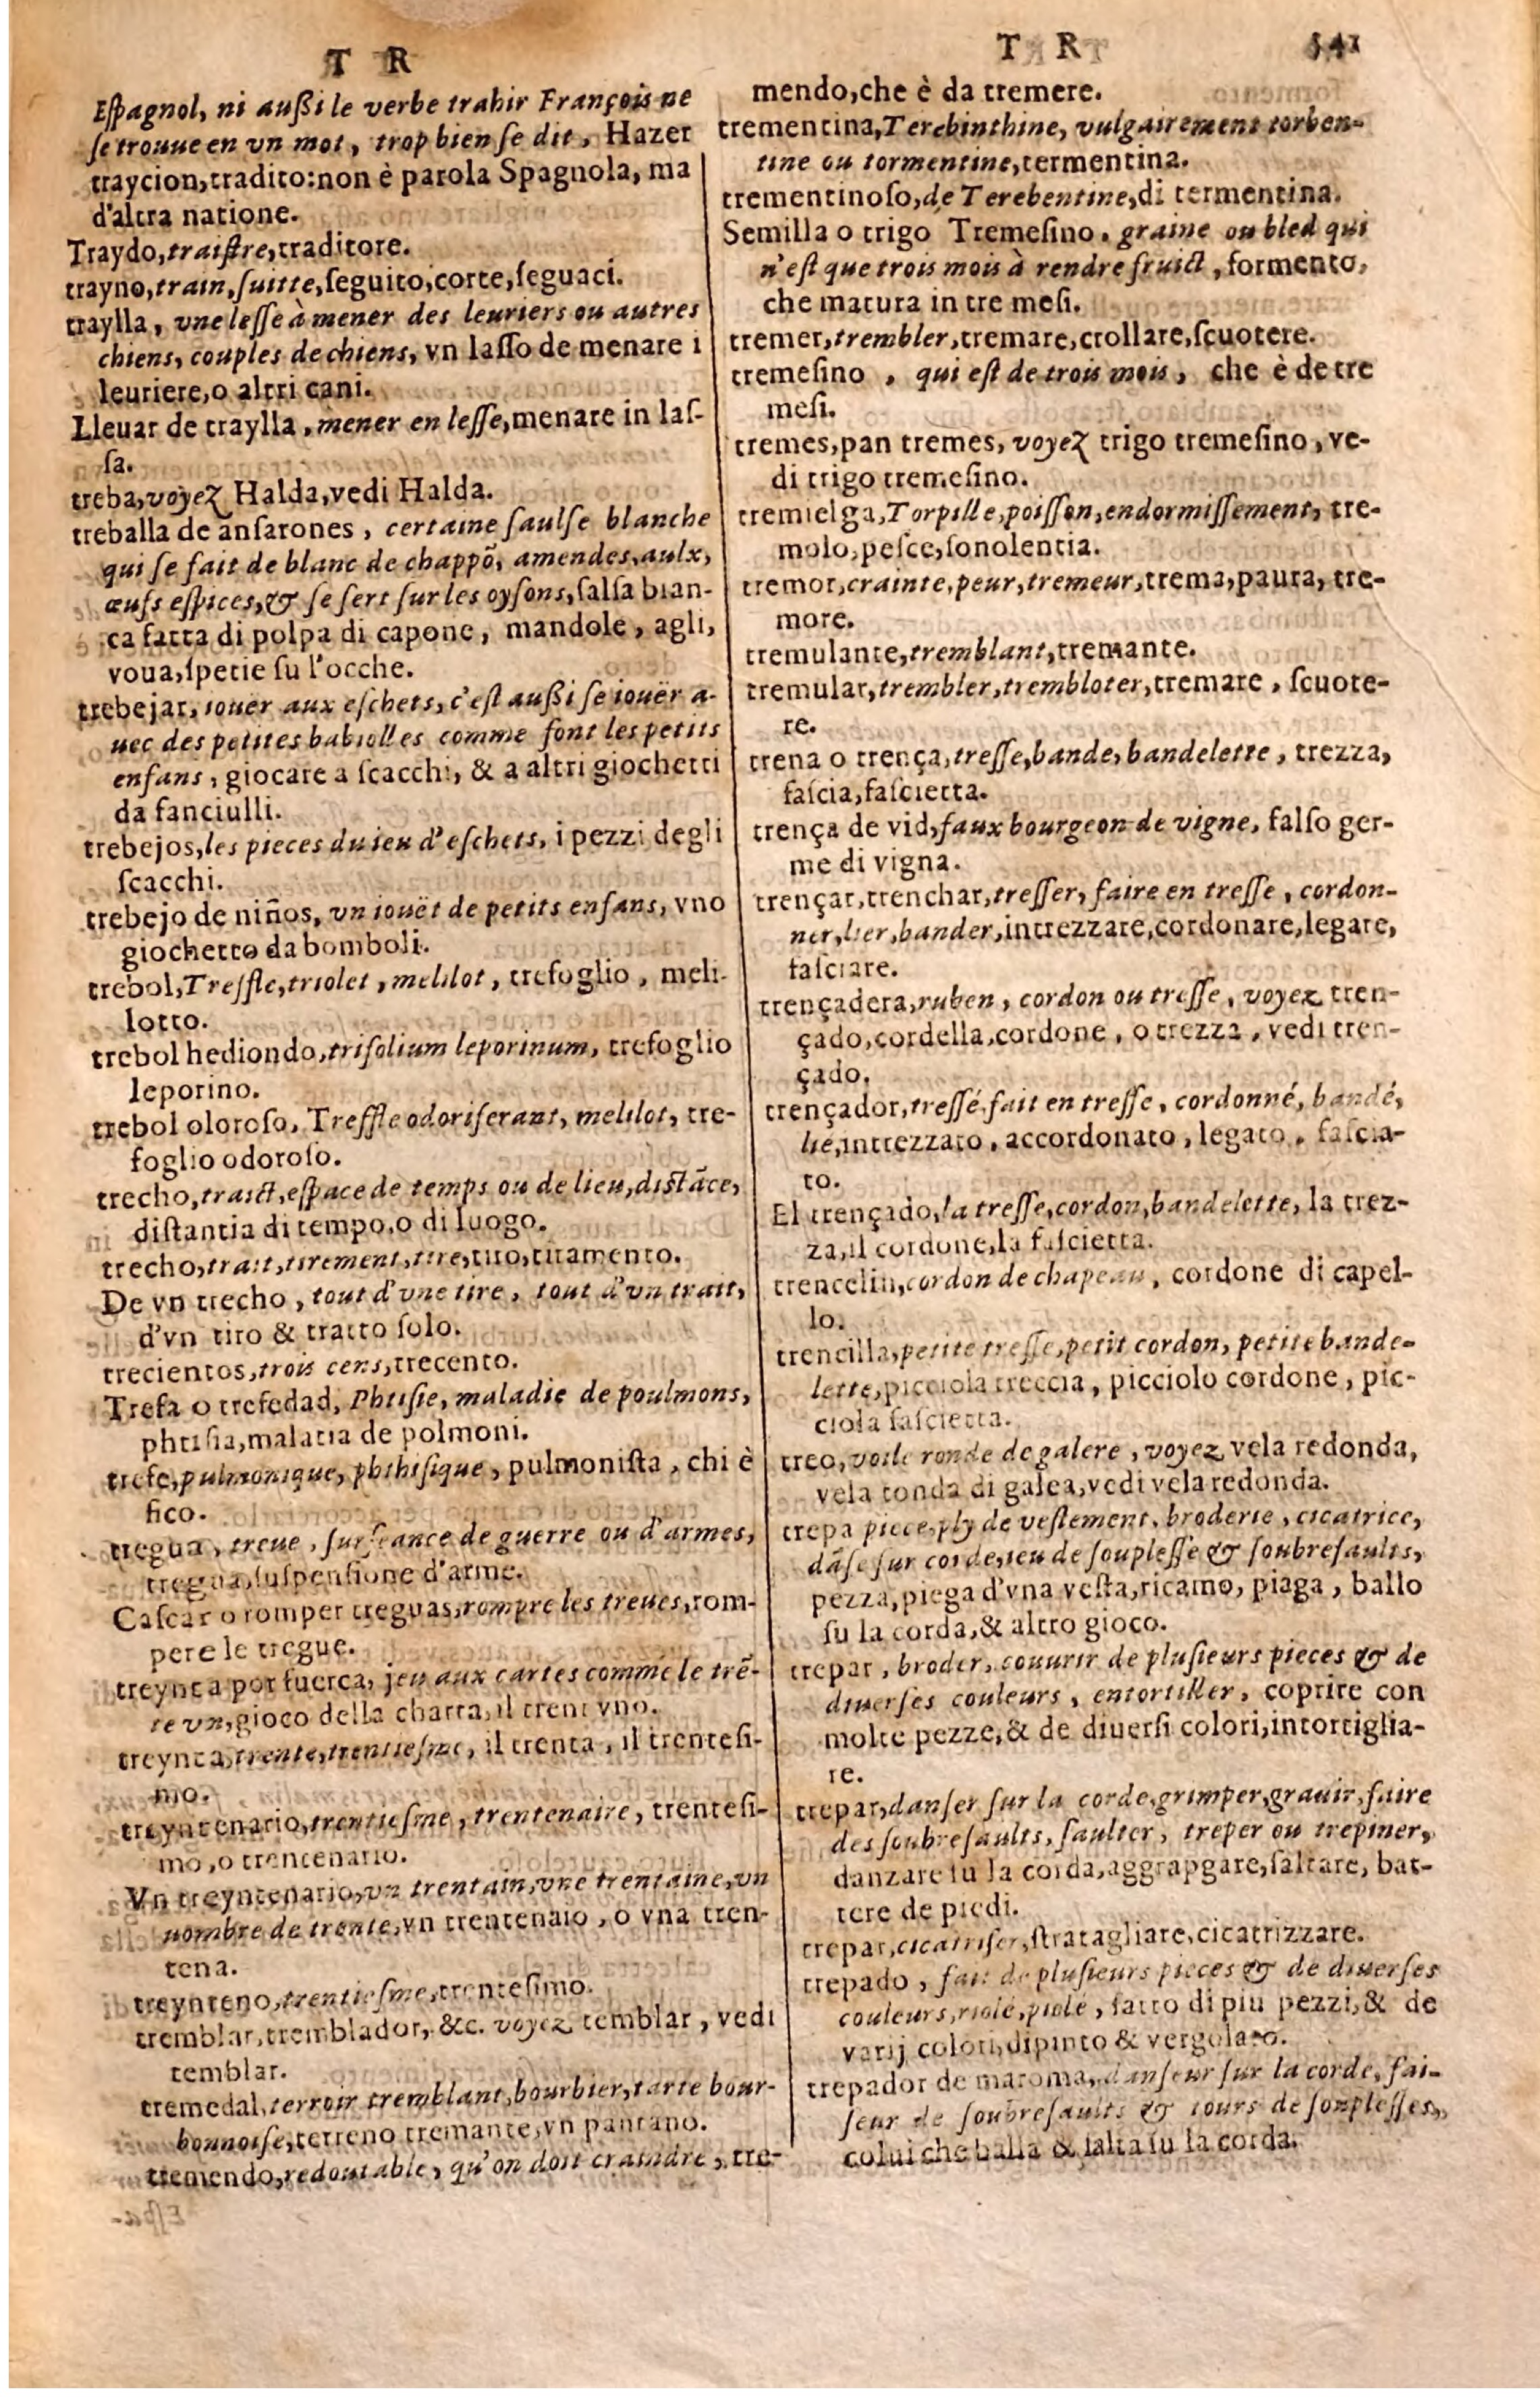 T R
Eſpagnol, ni außi le verbe trahir François ne
ſe trouue en vn mot, trop bien ſe dit, Hazer
traycion, tradito: non è parola Spagnola, ma
d'altra natione.
Traydo, traiſtre, traditore.
trayno, train, ſuitte, ſeguito, corte, ſeguaci.
traylla, vne leſſe à mener des leuriers ou autres
chiens, couples de chiens, vn laſſo de menare i
leuriere, o altri cani.
Lleuar de traylla, mener en leſſe, menare in laſ-
ſa.
treba, voyez Halda, vedi Halda.
treballa de anſarones, certaine ſaulſe blanche
qui ſe fait de blanc de chappō, amendes, aulx,
œufs eſpices, & ſe ſert ſur les oyſons, ſalſa bian-
ca fatta di polpa di capone, mandole, agli,
voua, ſpetie ſu l'ocche.
trebejar, iouër aux eſchets, c'eſt außi ſe iouër a-
uec des petites babiolles comme font les petits
enfans, giocare a ſcacchi, & a altri giochetti
da fanciulli.
trebejos, les pieces du ieu d'eſchets, i pezzi degli
ſcacchi.
trebejo de niños, vn iouët de petits enfans, vno
giochetto da bomboli.
trebol, Treffle, triolet, melilot, trefoglio, meli-
lotto.
trebol hediondo, trifolium leporinum, trefoglio
leporino.
trebol oloroſo, Treffle odoriferant, melilot, tre-
foglio odoroſo.
trecho, traict, eſpace de temps ou de lieu, diſtāce,
diſtantia di tempo, o di luogo.
trecho, trait, tirement, tire, tiro, titamento.
De vn trecho, tout d'vne tire, tout d'vn trait,
d'vn tiro & tratto ſolo.
trecientos, trois cens, trecento.
Trefa o trefedad, Phtiſie, maladie de poulmons,
phtiſia, malatia de polmoni.
trefe, pulmonique, phthiſique, pulmoniſta, chi è
fico.
tregua, treue, ſurſeance de guerre ou d'armes,
tregua, ſuſpenſione d'arme.
Caſcar o romper treguas, rompre les treues, rom-
pere le tregue.
treynta por fuerca, jeu aux cartes comme le trē-
te vn, gioco della charta, il trent vno.
treynta, trente, trentieſme, il trenta, il trenteſi-
mo.
treyntenario, trentieſme, trentenaire, trenteſi-
mo, o trentenario.
Vn treyntenario, vn trentain, vne trentaine, vn
nombre de trente, vn trentenaio, o vna tren-
tena.
treynteno, trentieſme, trenteſimo.
tremblar, tremblador, &c. voyez temblar, vedi
temblar.
tremedal, terroir tremblant, bourbier, tarte bour-
bonnoiſe, terreno tremante, vn pantano.
tremendo, redoutable, qu'on doit craindre, tre-
T R 541
mendo, che è da tremere.
trementina, Terebinthine, vulgairement torben-
tine ou tormentine, termentina.
trementinoſo, de Terebentine, di termentina.
Semilla o trigo Tremeſino, graine ou bled qui
n'eſt que trois mois à rendre fruict, formento,
che matura in tre meſi.
tremer, trembler, tremare, crollare, ſcuotere.
tremeſino, qui eſt de trois mois, che è de tre
meſi.
tremes, pan tremes, voyez trigo tremeſino, ve-
di trigo tremeſino.
tremielga, Torpille, poiſſon, endormiſſement, tre-
molo, peſce, ſonolentia.
tremor, crainte, peur, tremeur, trema, paura, tre-
more.
tremulante, tremblant, tremante.
tremular, trembler, trembloter, tremare, ſcuote-
re.
trena o trença, treſſe, bande, bandelette, trezza,
faſcia, faſcietta.
trença de vid, faux bourgeon de vigne, falſo ger-
me di vigna.
trençar, trenchar, treſſer, faire en treſſe, cordon-
ner, lier, bander, intrezzare, cordonare, legare,
faſciare.
trençadera, ruben, cordon ou treſſe, voyez tren-
çado, cordella, cordone, o trezza, vedi tren-
çado.
trençador, treſſé, fait en treſſe, cordonné, bandé,
lié, intrezzato, accordonato, legato, faſcia-
to.
El trençado, la treſſe, cordon, bandelette, la trez-
za, il cordone, la faſcietta.
trencelin, cordon de chapeau, cordone di capel-
lo.
trencilla, petite treſſe, petit cordon, petite bande-
lette, picciola treccia, picciolo cordone, pic-
ciola faſcietta.
treo, voile ronde de galere, voyez vela redonda,
vela tonda di galea, vedi vela redonda.
trepa piece, ply de veſtement, broderie, cicatrice,
dāſe ſur corde, ieu de ſoupleſſe & ſoubreſaults,
pezza, piega d'vna veſta, ricamo, piaga, ballo
ſu la corda, & altro gioco.
trepar, broder, couurir de pluſieurs pieces & de
diuerſes couleurs, entortiller, coprire con
molte pezze, & de diuerſi colori, intortiglia-
re.
trepar, danſer ſur la corde, grimper, grauir, faire
des ſoubreſaults, ſaulter, treper ou trepiner,
danzare ſu la corda, aggrapgare, ſaltare, bat-
tere de piedi.
trepar, cicatriſer, ſtratagliare, cicatrizzare.
trepado, fait de pluſieurs pieces & de diuerſes
couleurs, riolé, piolé, fatto di piu pezzi, & de
varij colori, dipinto & vergolato.
trepador de maroma, danſeur ſur la corde, fai-
ſeur de ſoubreſaults & tours de ſoupleſſes,
colui che balla & ſalta ſu la corda.